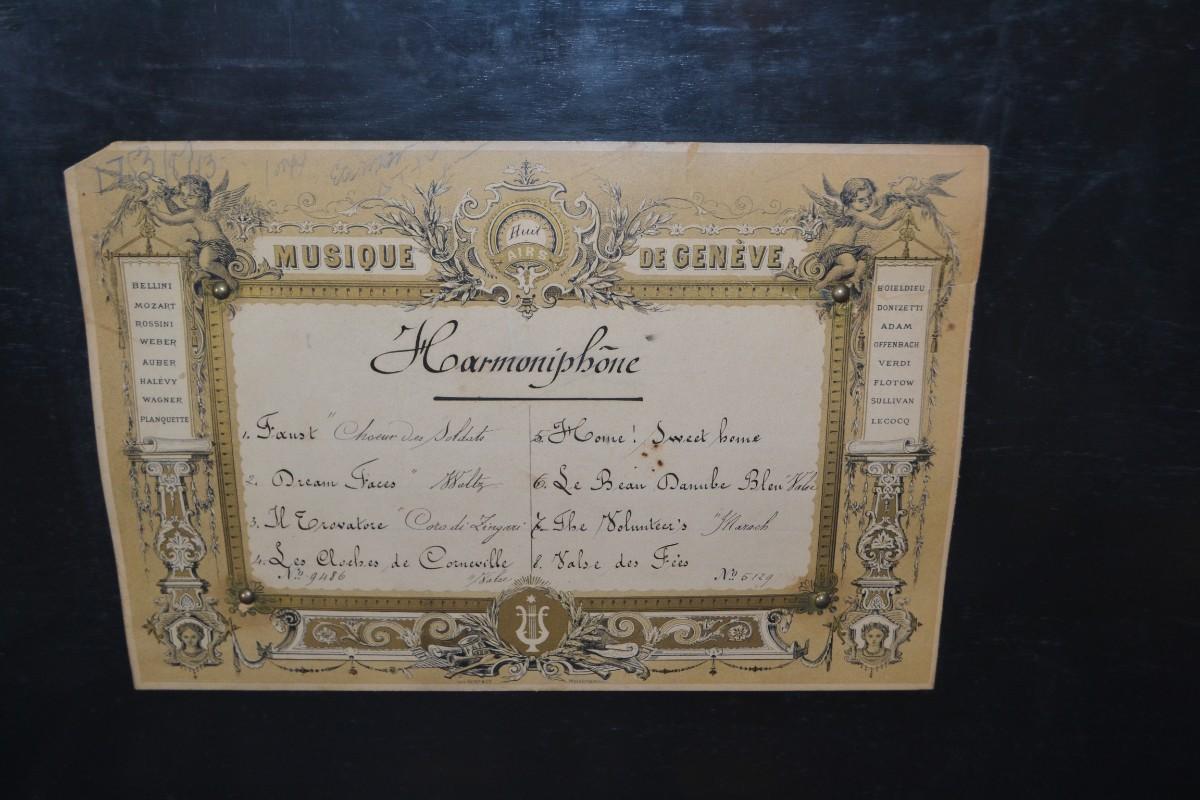 Huit
AIRS
MUSIQUE DE GENÈVE
BELLINI
MOZART
ROSSINI
WEBER
AUBER
HALÉVY
WAGNER
PLANQUETTE
Harmoniphône
1. Faust "Choeur des Soldats
2. Dream Faces " Waltz
3. Il Trovatore "Coro di Zingari
4. Les Cloches de Corneville
"Valse
No 9486
5. Home! Sweet home
6. Le Beau Danube Bleu "Valse
7. The Volunteer's "March
8. Valse des Fées
No 5129
BOIELDIEU
DONIZETTI
ADAM
OFFENBACH
VERDI
FLOTOW
SULLIVAN
LECOCQ